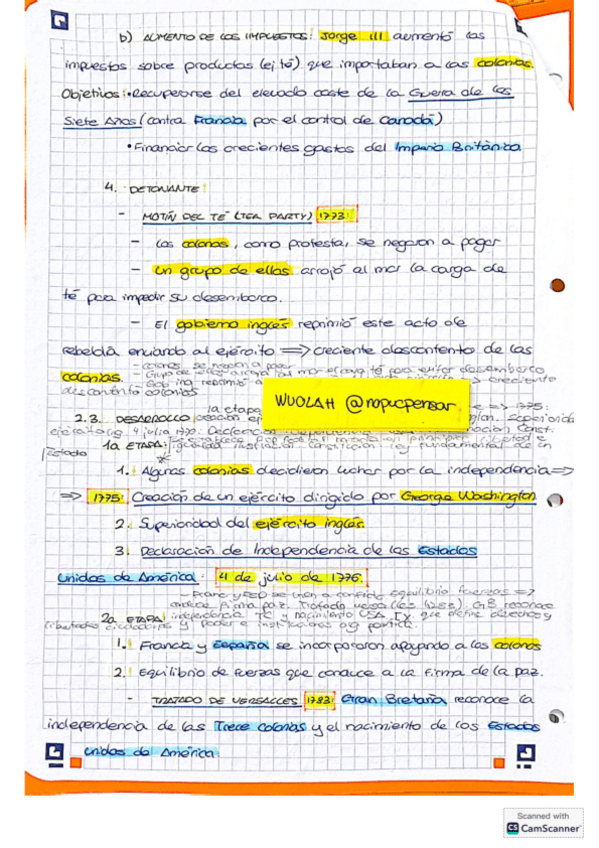 b) AUMENTO DE LOS IMPUESTOS: Jorge III aumentó los
impuestos sobre productos (ej té) que importaban a las colonias.
Objetivos: • Recuperarse del elevado coste de la Guerra de los
Siete Años (contra Francia por el control de Canadá)
• Financiar los crecientes gastos del Imperio Británico
4. DETONANTE
- MOTÍN DEL TÉ (TEA PARTY) 1773:
- Los colonos, como protesta, se negaron a pagar
- Un grupo de ellos arrojó al mar la carga de
té para impedir su desembarco.
- El gobierno inglés reprimió este acto de
rebeldía enviando al ejército => creciente descontento de las
colonias.
- colonos se negaron a pagar
- Grupo de ellos al mar carga té para evitar desembarco
reprimió creciente
descontento colonias
WUOLAH @nopucpensar
2.3. DESARROLLO
1a ETAPA:
Estado
1. Algunas colonias decidieron luchar por la independencia =>
=> 1775: Creación de un ejército dirigido por George Washington
2. Superioridad del ejército inglés
3. Declaración de Independencia de los Estados
Unidos de América: 4 de julio de 1776.
equilibrio fuerzas =>
firma paz. Tratado Versalles (1783): GB reconoce
2a ETAPA: independencia TC y nacimiento USA que define derechos y
libertades ciudadanos y poder e instituciones
1. Francia y España se incorporaron apoyando a los colonos
2. Equilibrio de fuerzas que conduce a la firma de la paz.
- TRATADO DE VERSALLES 1783: Gran Bretaña reconoce la
independencia de las Trece Colonias y el nacimiento de los Estados
Unidos de América
Scanned with
CS CamScanner